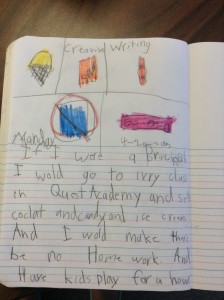 Creative Writing
Monday
If I were a principal
I wold go to ivry clas
in Quest Academy and set
coclat and candy and ice cream
And I wold make thair
be no Home work. And
Have kids play for a howr